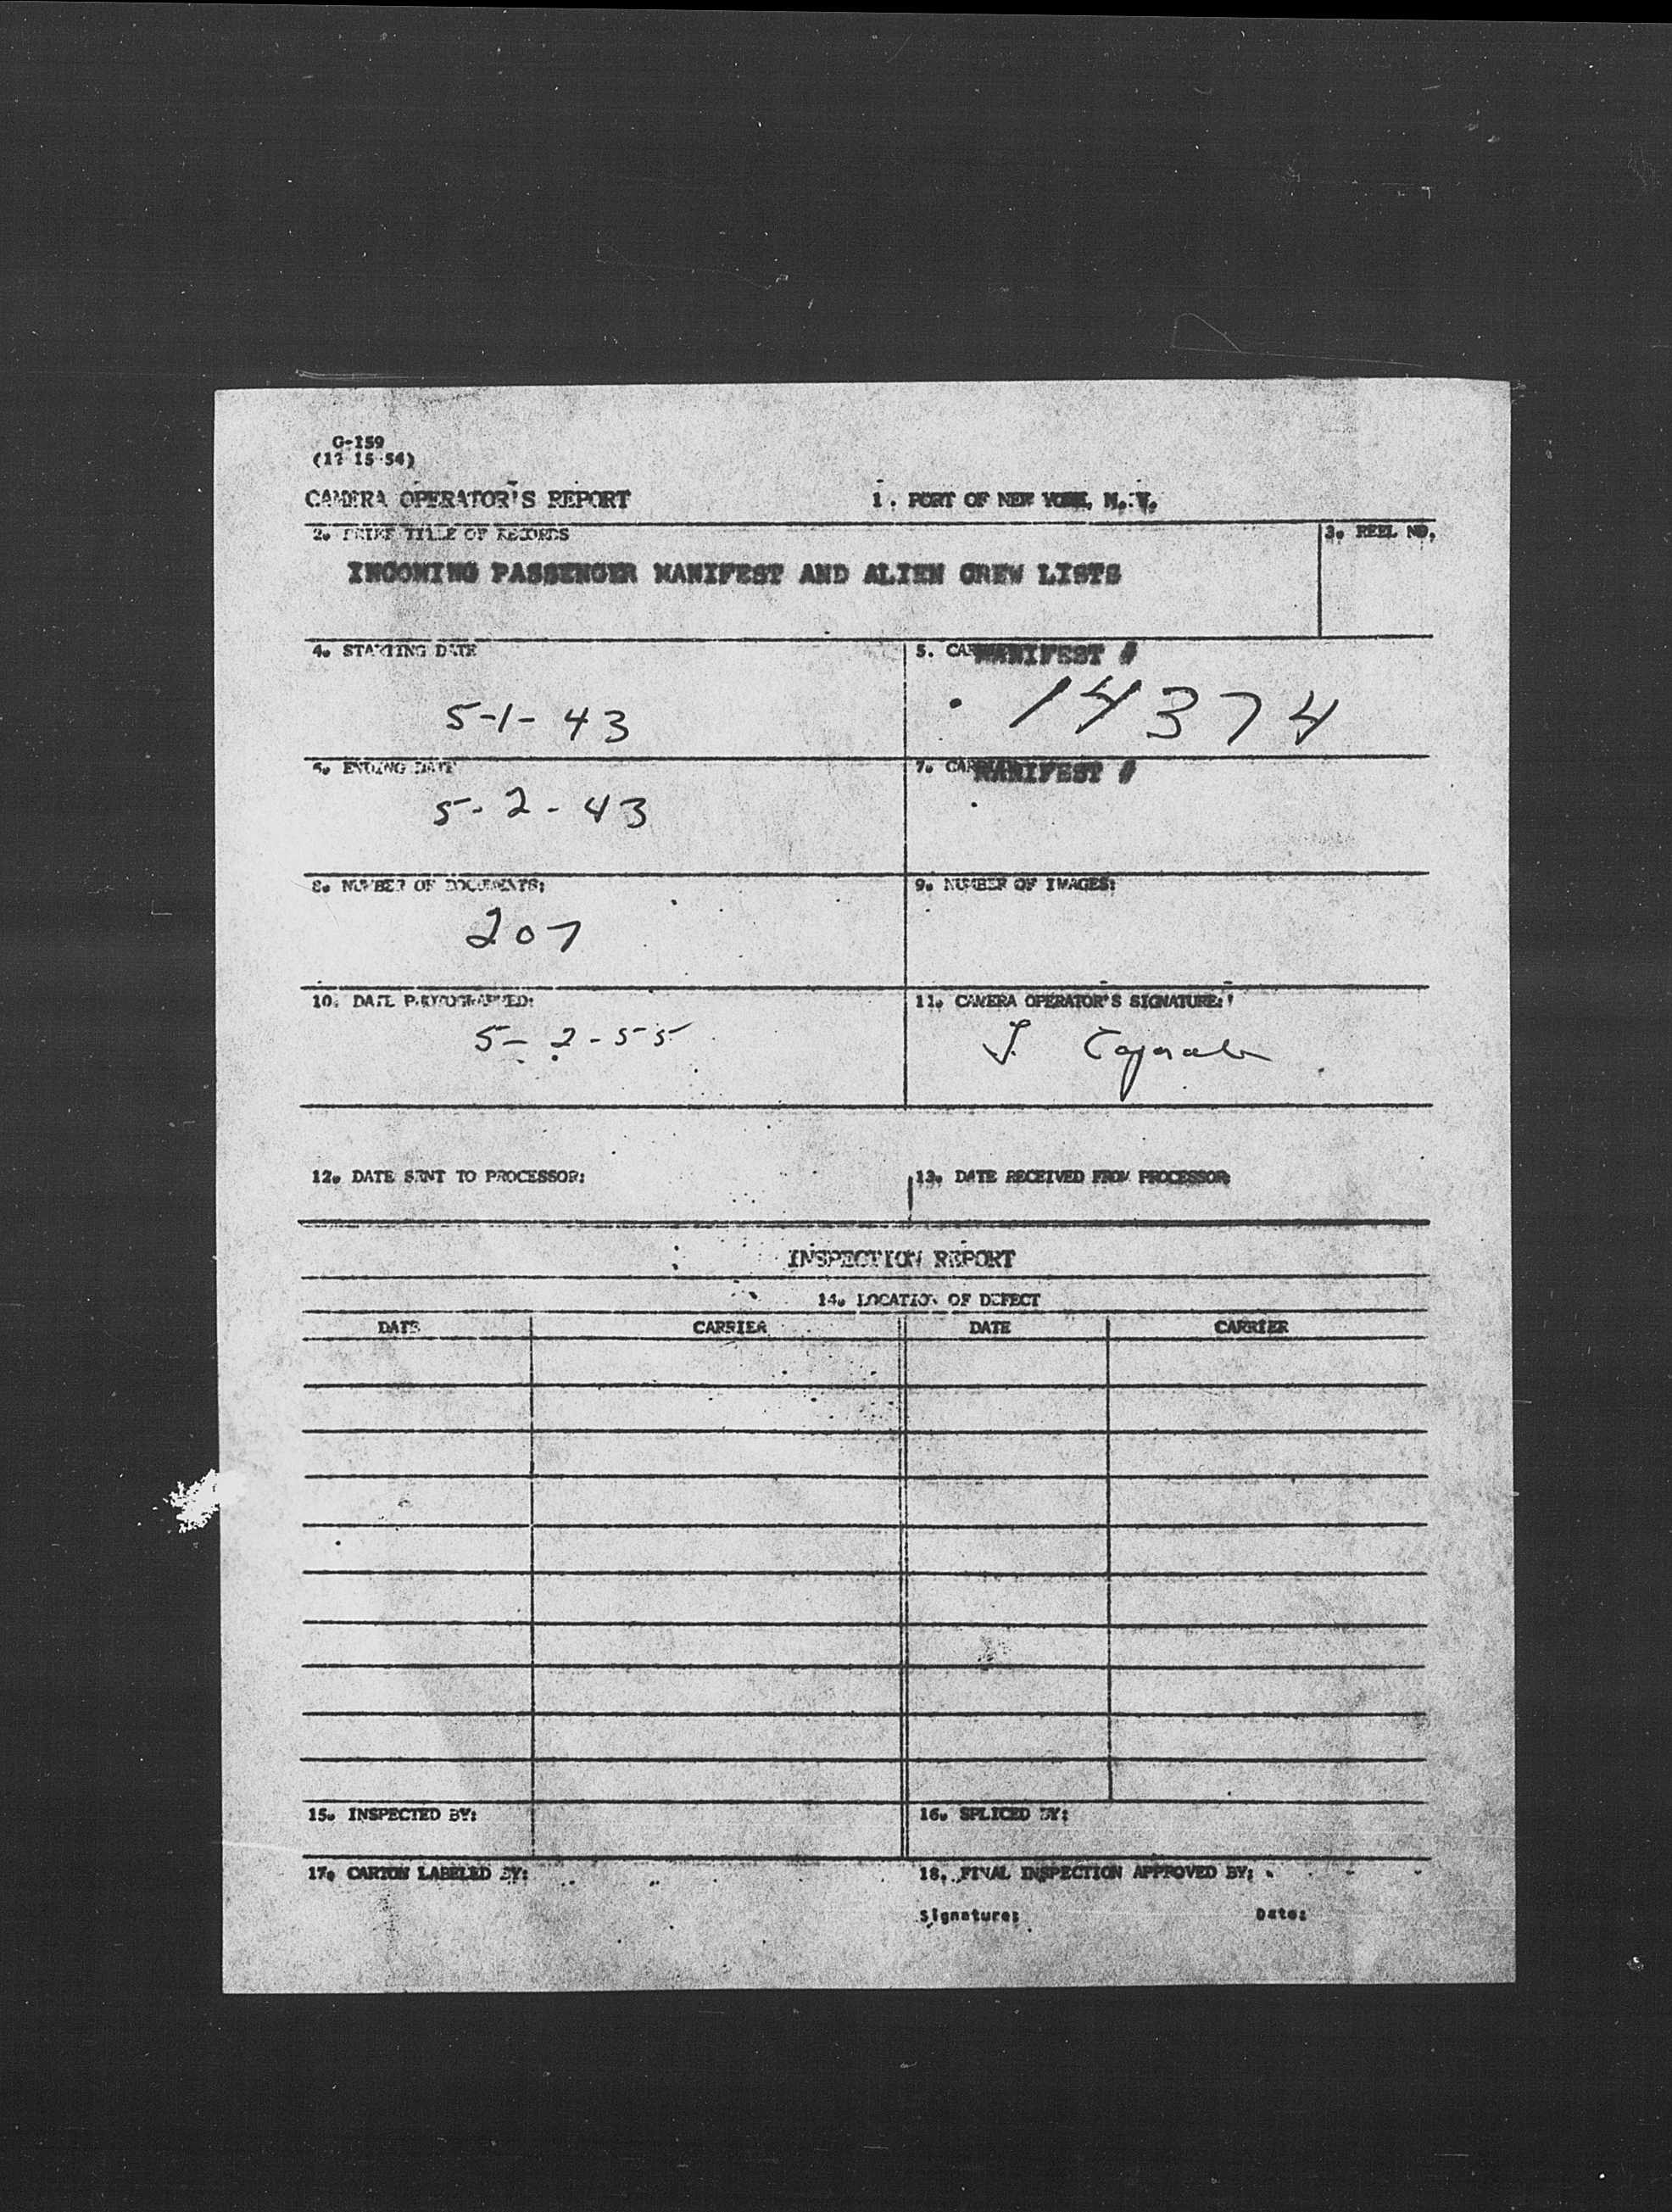 G-159
(12-15-54)
CAMERA OPERATOR'S REPORT 1. PORT OF NEW YORK, N. Y.
2. PRIME TITLE OF RECORDS 3. REEL NO.
INCOMING PASSENGER MANIFEST AND ALIEN CREW LISTS
4. STARTING DATE 5. MANIFEST #
5-1-43 14374
6. ENDING DATE 7. MANIFEST #
5-2-43
8. NUMBER OF DOCUMENTS: 9. NUMBER OF IMAGES:
207
10. DATE PHOTOGRAPHED: 11. CAMERA OPERATOR'S SIGNATURE:
5-2-55
12. DATE SENT TO PROCESSOR: 13. DATE RECEIVED FROM PROCESSOR
INSPECTION REPORT
14. LOCATION OF DEFECT
DATE CARRIER DATE CARRIER
15. INSPECTED BY: 16. SPLICED BY:
17. CARTON LABELED BY: 18. FINAL INSPECTION APPROVED BY:
Signature: Date: